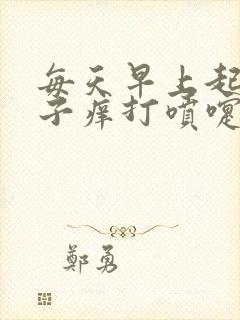 每天早上起
子痒打喷嚏
鄭勇